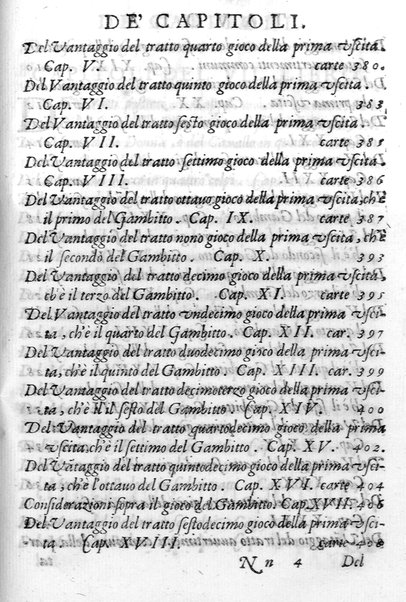 DE' CAPITOLI.
Del Vantaggio del tratto quarto gioco della prima vscita.
Cap. V. carte 380.
Del Vantaggio del tratto quinto gioco della prima vscita.
Cap. VI. carte 383
Del Vantaggio del tratto sesto gioco della prima vscita.
Cap. VII. carte 385
Del Vantaggio del tratto settimo gioco della prima vscita
Cap. VIII. carte 386
Del Vantaggio del tratto ottauo gioco della prima vscita, ch'è
il primo del Gambitto. Cap. IX. carte 387
Del Vantaggio del tratto nono gioco della prima vscita, ch'è
il secondo del Gambitto. Cap. X. car. 393
Del Vantaggio del tratto decimo gioco della prima vscita,
ch'è il terzo del Gambitto. Cap. XI. carte 395
Del Vantaggio del tratto vndecimo gioco della prima vsci-
ta, ch'è il quarto del Gambitto. Cap. XII. car. 397
Del Vantaggio del tratto duodecimo gioco della prima vsci-
ta, ch'è il quinto del Gambitto. Cap. XIII. car. 399
Del Vantaggio del tratto decimoterzo gioco della prima vsci-
ta, ch'è il sesto del Gambitto. Cap. XIV. car. 400
Del Vantaggio del tratto quartodecimo gioco della prima
vscita, ch'è il settimo del Gambitto. Cap. XV. car. 402.
Del Vātaggio del tratto quintodecimo gioco della prima vsci-
ta, ch'è l'ottauo del Gambitto. Cap. XVI. carte 404
Considerazioni sopra il gioco del Gambitto. Cap. XVII. 406
Del Vantaggio del tratto sestodecimo gioco della prima vsci-
ta. Cap. XVIII. carte 408
N n 4 Del